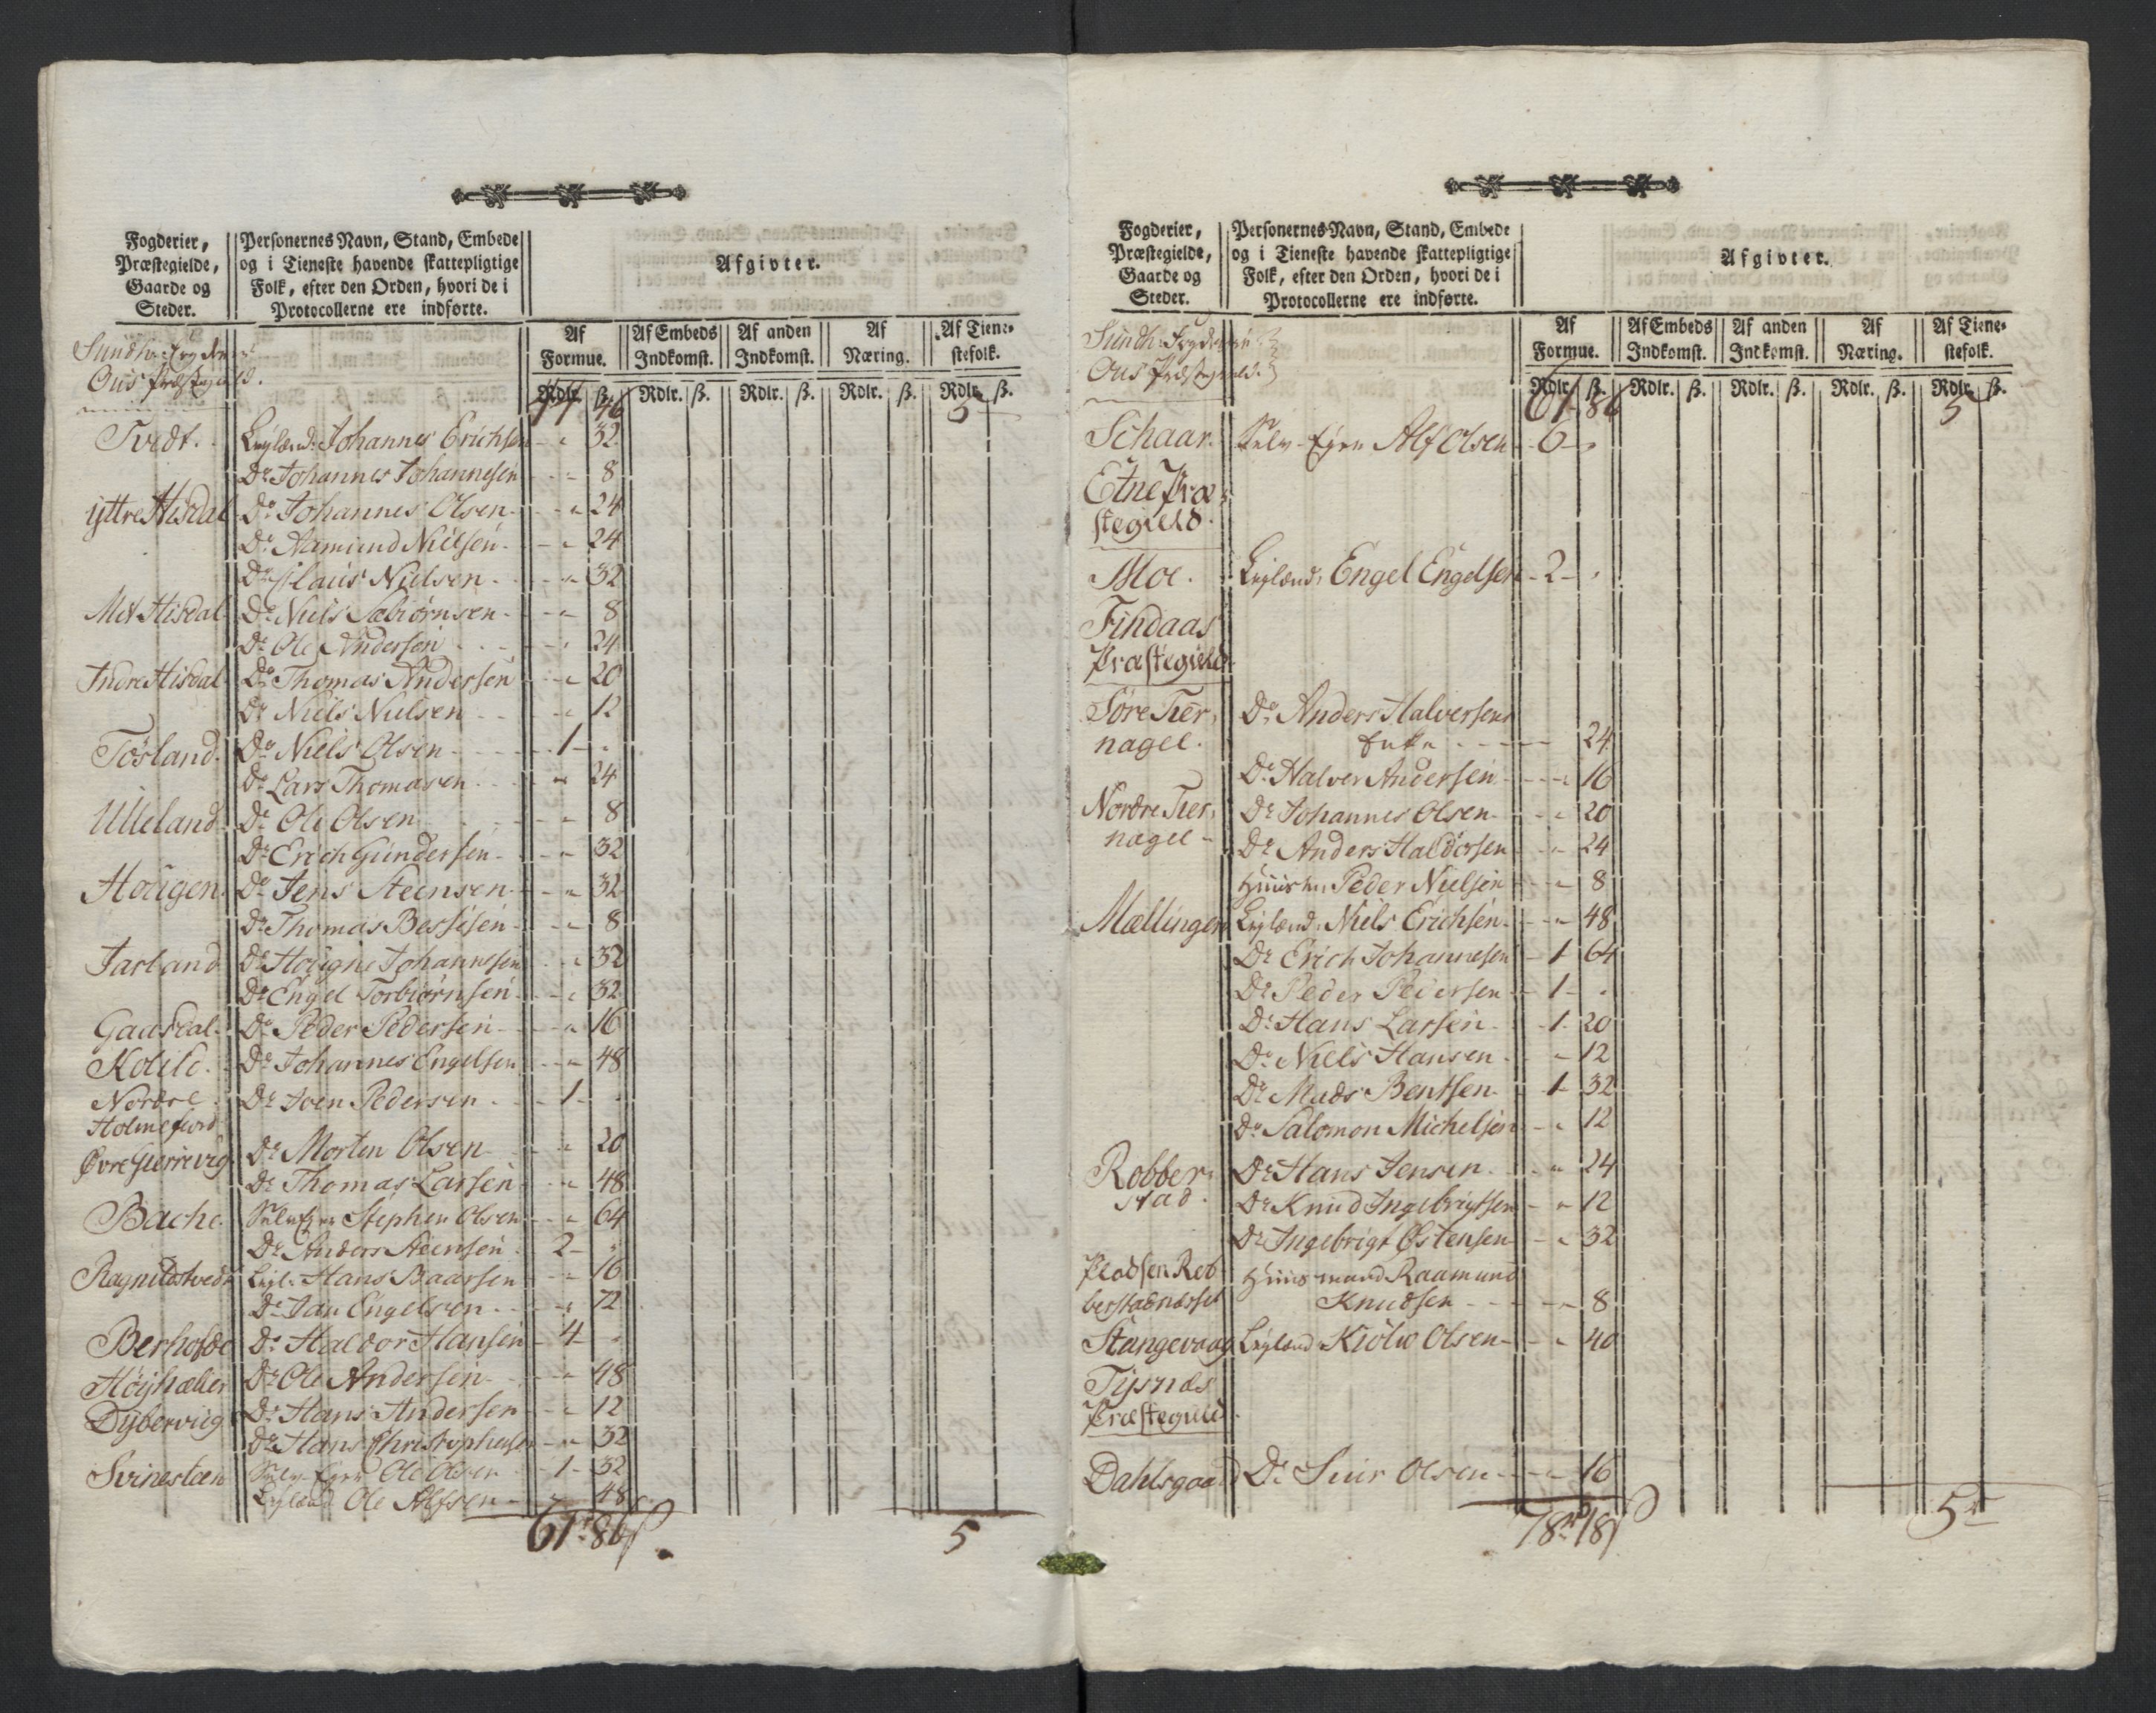 Fogderier, Præstegielde, Gaarde og Steder.
Personernes Navn, Stand, Embede og i Tieneste havende skattepligtige Folk, efter den Orden, hvori de i Protocollerne ere indførte.
Afgivter.
Af Formue. Af Embeds Indkomst. Af anden Indkomst. Af Næring. Af Tienestefolk.
Rdlr. ß. Rdlr. ß. Rdlr. ß. Rdlr. ß. Rdlr. ß.
Ous Præstegield.
46 5
Tvedt. Leylænd: Johannes Erichsen - " 32
Do Johannes Johannesen - " 8
Yttre Hisdal Do Johannes Olsen - " 24
Do Aamund Nielsen - " 24
Do Claus Nielsen - " 32
Met Hisdal Do Niels Sæbiørnsen - " 8
Do Ole Andersen - " 24
Indre Hisdal Do Thomas Andersen - " 20
Do Niels Nielsen - " 12
Tosland. Do Niels Olsen - 1 -
Do Lars Thomasen - " 24
Ulleland Do Ole Olsen - " 8
Do Erich Gundersen - " 32
Hougen Do Jens Steensen - " 32
Do Thomas Bessesen - " 8
Jarland Do Hougne Johannesen - " 32
Do Engel Torbiørnsen - " 32
Gaasdal Do Peder Pedersen - " 16
Kolile. Do Johannes Engelsen - " 48
Nordre Do Joen Pedersen - 1 -
Holmefiord
Øvre Gierrevig Do Morten Olsen - " 20
Do Thomas Larsen - " 48
Bache Selv Eyer Stephen Olsen - " 64
Do Anders Steensen 2 -
Ragnildstvedt Leyl: Hans Baarsen - " 16
Do Jan Engelsen - " 72
Berhofde Do Haldor Hansen - 4 -
Høyhæller Do Ole Andersen - " 48
Dybervig Do Hans Andersen - " 12
Do Hans Christophersen - " 32
Svinesteen Selv-Eyer Ole Olsen - 1 - 32
Leylænd Ole Alfsen - " 48
61 r 86 ß. 5
Fogderier, Præstegielde, Gaarde og Steder.
Personernes Navn, Stand, Embede og i Tieneste havende skattepligtige Folk, efter den Orden, hvori de i Protocollerne ere indførte.
Afgivter.
Af Formue. Af Embeds Indkomst. Af anden Indkomst. Af Næring. Af Tienestefolk.
Rdlr. ß. Rdlr. ß. Rdlr. ß. Rdlr. ß. Rdlr. ß.
Ous Præstegield.
61 86 5
Schaar. Selv-Eyer Alf Olsen - 6 -
Etne Præ-
stegield.
Moe. Leylænd: Engel Engelsen - 2 -
Findaas
Præstegield
Søre Tier- Do Anders Halversens
nagel. Enke - 24
Do Halver Andersen - " 16
Nordre Tier- Do Johannes Olsen - " 20
nagel - Do Anders Haldorsen - " 24
Huusm: Peder Nielsen - " 8
Mællingen Leylænd: Niels Erichsen - " 48
Do Erich Johannesen - 1 64
Do Peder Pedersen - 1 -
Do Hans Larsen - 1 - 20
Do Niels Hansen - 12
Do Mads Bentsen - 1 - 32
Do Salomon Michelsen - " 12
Robber- Do Hans Jensen - " 24
stad. Do Knud Ingebrigtsen - " 12
Do Ingebrigt Østensen - " 32
Pladsen Rob- Huusmand Raamund
berstadnæsset Knudsen - " 8
Stangevaag Leylænd Kiølv Olsen - " 40
Tysnæs
Præstegield.
Dahlsgaard Do Siur Olsen - " 16
78 r 18 ß 5 r